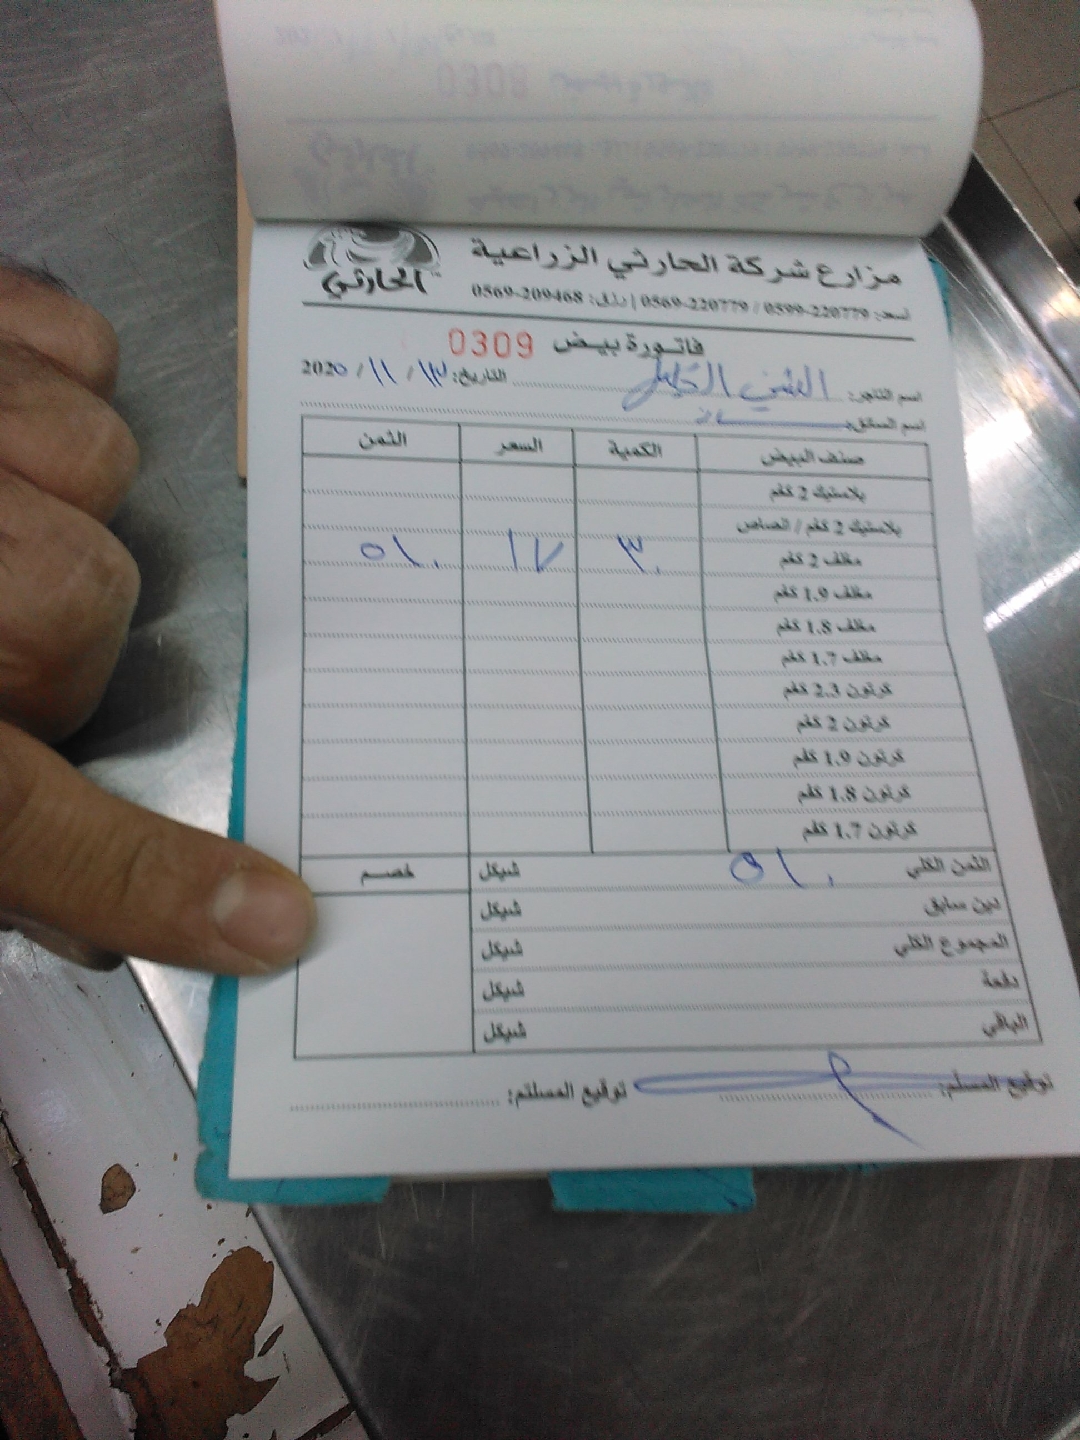 الحارثي
مزارع شركة الحارثي الزراعية
اسعد: 0599-220779 / 0569-220779 | رزق: 0569-209468
فاتورة بيض 0309
اسم التاجر: التاريخ: ١٣ / ١١ / 2020
اسم السائق:
صنف البيض الكمية السعر الثمن
بلاستيك 2 كغم
بلاستيك 2 كغم / انصاص
مغلف 2 كغم ٣٠ ١٧ ٥١٠
مغلف 1.9 كغم
مغلف 1.8 كغم
مغلف 1.7 كغم
كرتون 2.3 كغم
كرتون 2 كغم
كرتون 1.9 كغم
كرتون 1.8 كغم
كرتون 1.7 كغم
الثمن الكلي ٥١٠ شيكل خصم
دين سابق شيكل
المجموع الكلي شيكل
دفعة شيكل
الباقي شيكل
توقيع المسلم: توقيع المستلم: